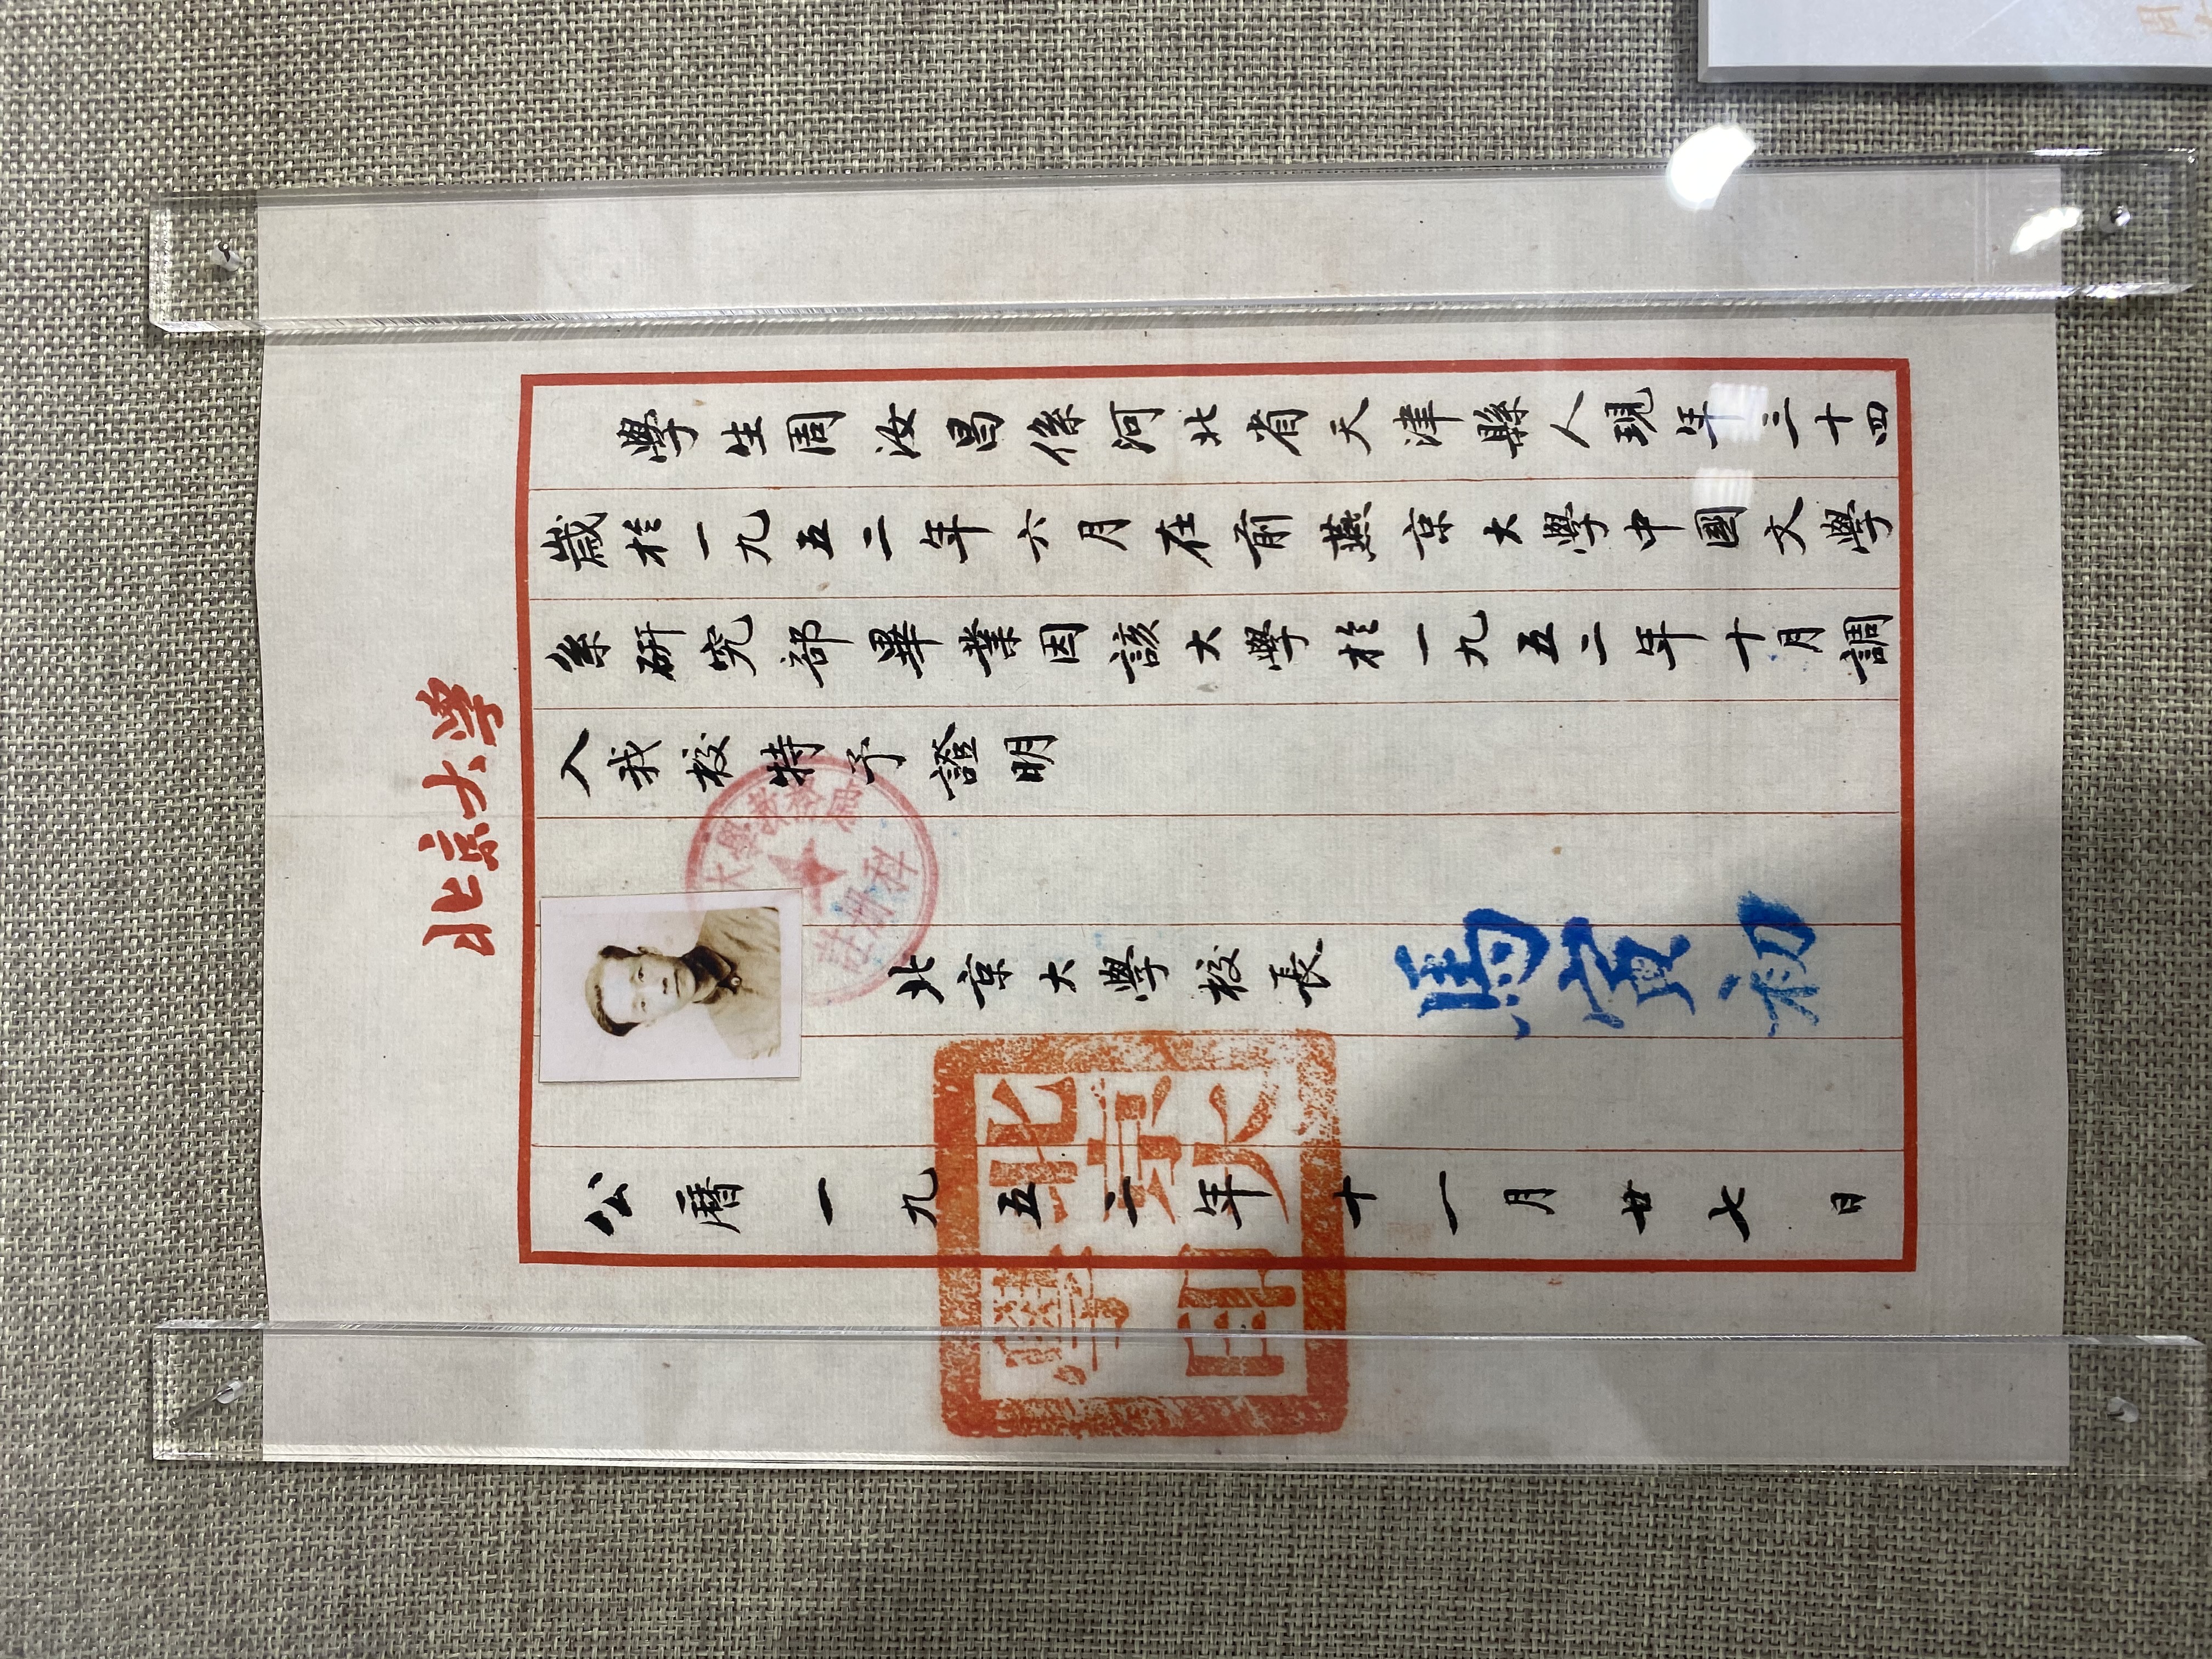 北京大学
學生周汝昌係河北省天津縣人現年三十四
歲於一九五二年六月在前燕京大學中國文學
系研究部畢業因該大學於一九五二年十月調
入我校特予證明
大學教務處
註冊科
北京大學校長
馬寅初
公曆一九五二年十一月廿七日
北京大
學印
周